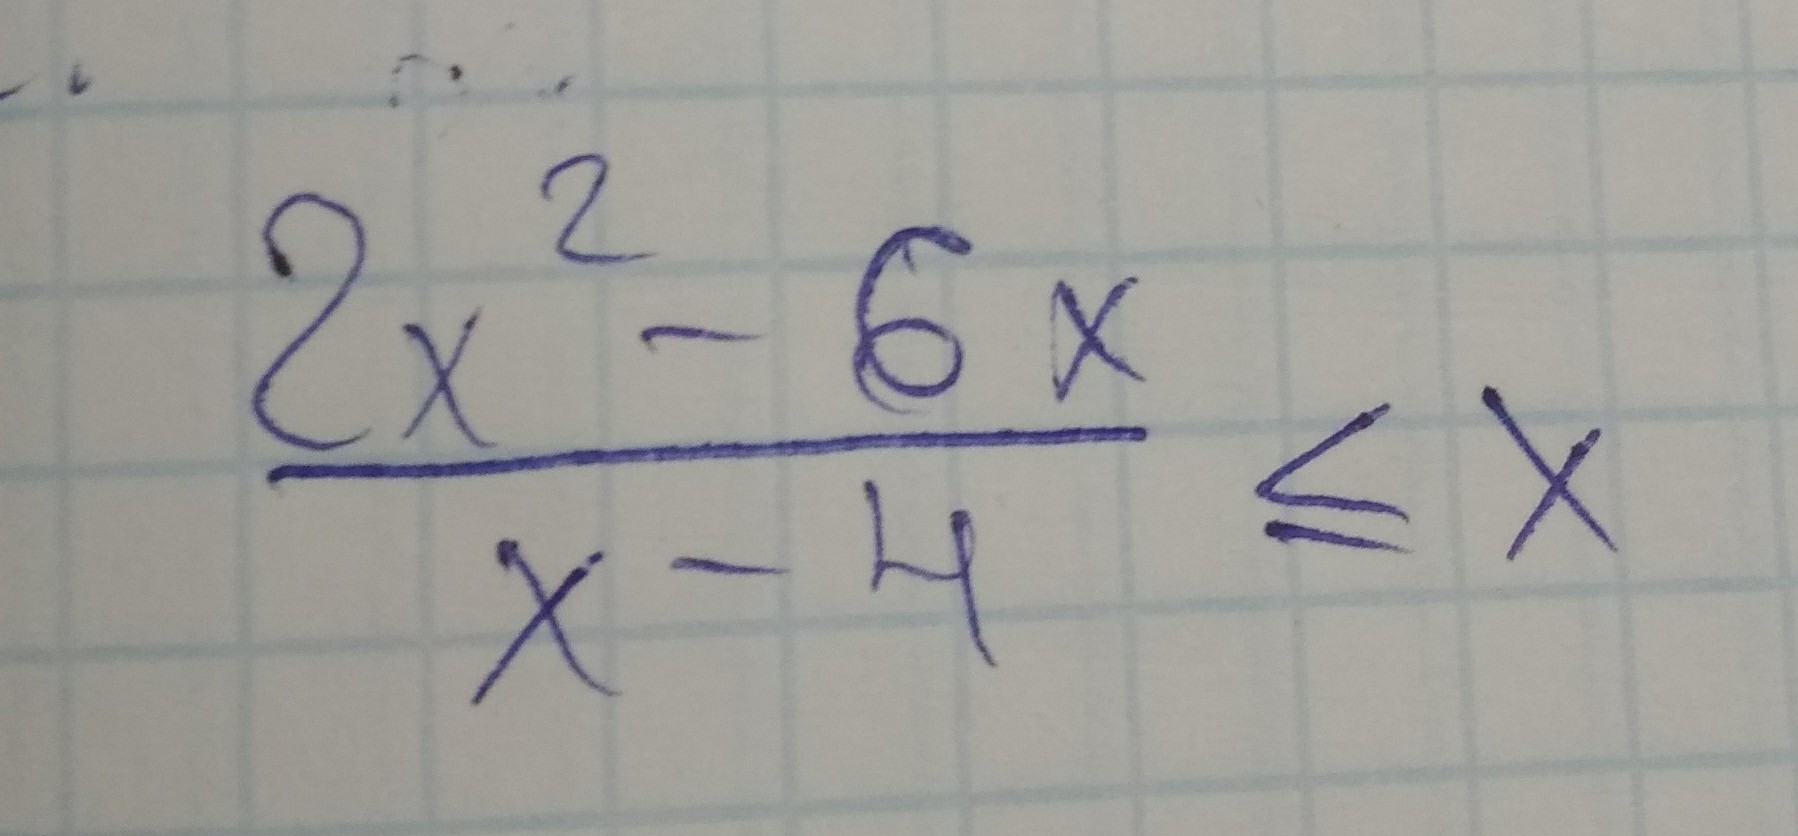 2x² - 6x
x - 4 ≤ x